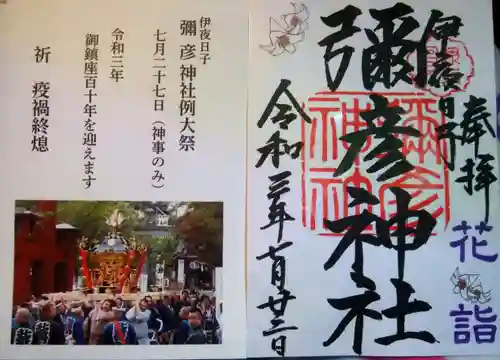 伊夜日子
彌彦神社例大祭
七月二十七日（神事のみ）
令和三年
御鎮座百十年を迎えます
祈 疫禍終熄
奉拝
伊夜日子
彌彦神社
令和三年七月廿二日
花詣